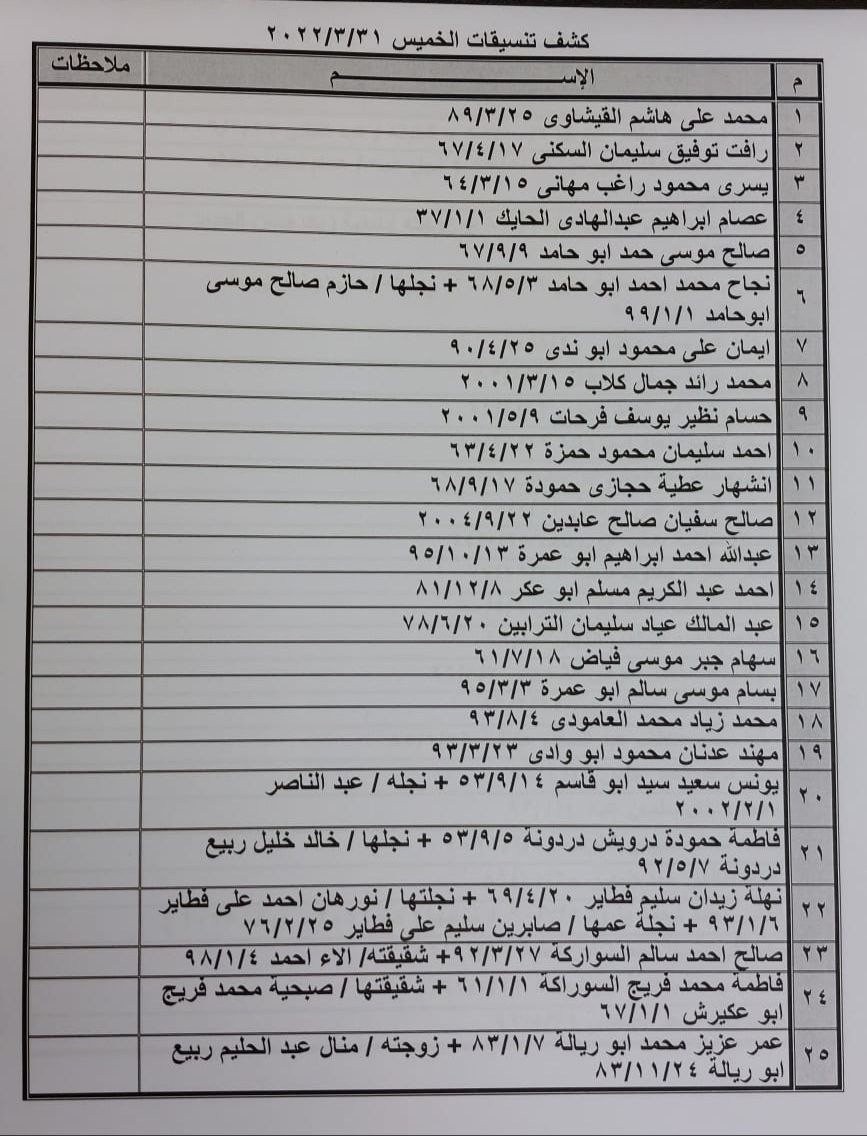 كشف تنسيقات الخميس ٢٠٢٢/٣/٣١
م الإســـــــــــــــم ملاحظات
١ محمد على هاشم القيشاوى ٨٩/٣/٢٥
٢ رافت توفيق سليمان السكنى ٦٧/٤/١٧
٣ يسرى محمود راغب مهانى ٦٤/٣/١٥
٤ عصام ابراهيم عبدالهادى الحايك ٣٧/١/١
٥ صالح موسى حمد ابو حامد ٦٧/٩/٩
٦ نجاح محمد احمد ابو حامد ٦٨/٥/٣ + نجلها / حازم صالح موسى
ابوحامد ٩٩/١/١
٧ ايمان على محمود ابو ندى ٩٠/٤/٢٥
٨ محمد رائد جمال كلاب ٢٠٠١/٣/١٥
٩ حسام نظير يوسف فرحات ٢٠٠١/٥/٩
١٠ احمد سليمان محمود حمزة ٦٣/٤/٢٢
١١ انشهار عطية حجازى حمودة ٦٨/٩/١٧
١٢ صالح سفيان صالح عابدين ٢٠٠٤/٩/٢٢
١٣ عبدالله احمد ابراهيم ابو عمرة ٩٥/١٠/١٣
١٤ احمد عبد الكريم مسلم ابو عكر ٨١/١٢/٨
١٥ عبد المالك عياد سليمان الترابين ٧٨/٦/٢٠
١٦ سهام جبر موسى فياض ٦١/٧/١٨
١٧ بسام موسى سالم ابو عمرة ٩٥/٣/٣
١٨ محمد زياد محمد العامودى ٩٣/٨/٤
١٩ مهند عدنان محمود ابو وادى ٩٣/٣/٢٣
٢٠ يونس سعيد سيد ابو قاسم ٥٣/٩/١٤ + نجله / عبد الناصر
٢٠٠٢/٢/١
٢١ فاطمة حمودة درويش دردونة ٥٣/٩/٥ + نجلها / خالد خليل ربيع
دردونة ٩٢/٥/٧
٢٢ نهلة زيدان سليم فطاير ٦٩/٤/٢٠ + نجلتها / نورهان احمد على فطاير
٩٣/١/٦ + نجلة عمها / صابرين سليم على فطاير ٧٦/٢/٢٥
٢٣ صالح احمد سالم السواركة ٩٢/٣/٢٧+ شقيقته/ الاء احمد ٩٨/١/٤
٢٤ فاطمة محمد فريج السوراكة ٦١/١/١ + شقيقتها / صبحية محمد فريج
ابو عكيرش ٦٧/١/١
٢٥ عمر عزيز محمد ابو ريالة ٨٣/١/٧ + زوجته / منال عبد الحليم ربيع
ابو ريالة ٨٣/١١/٢٤